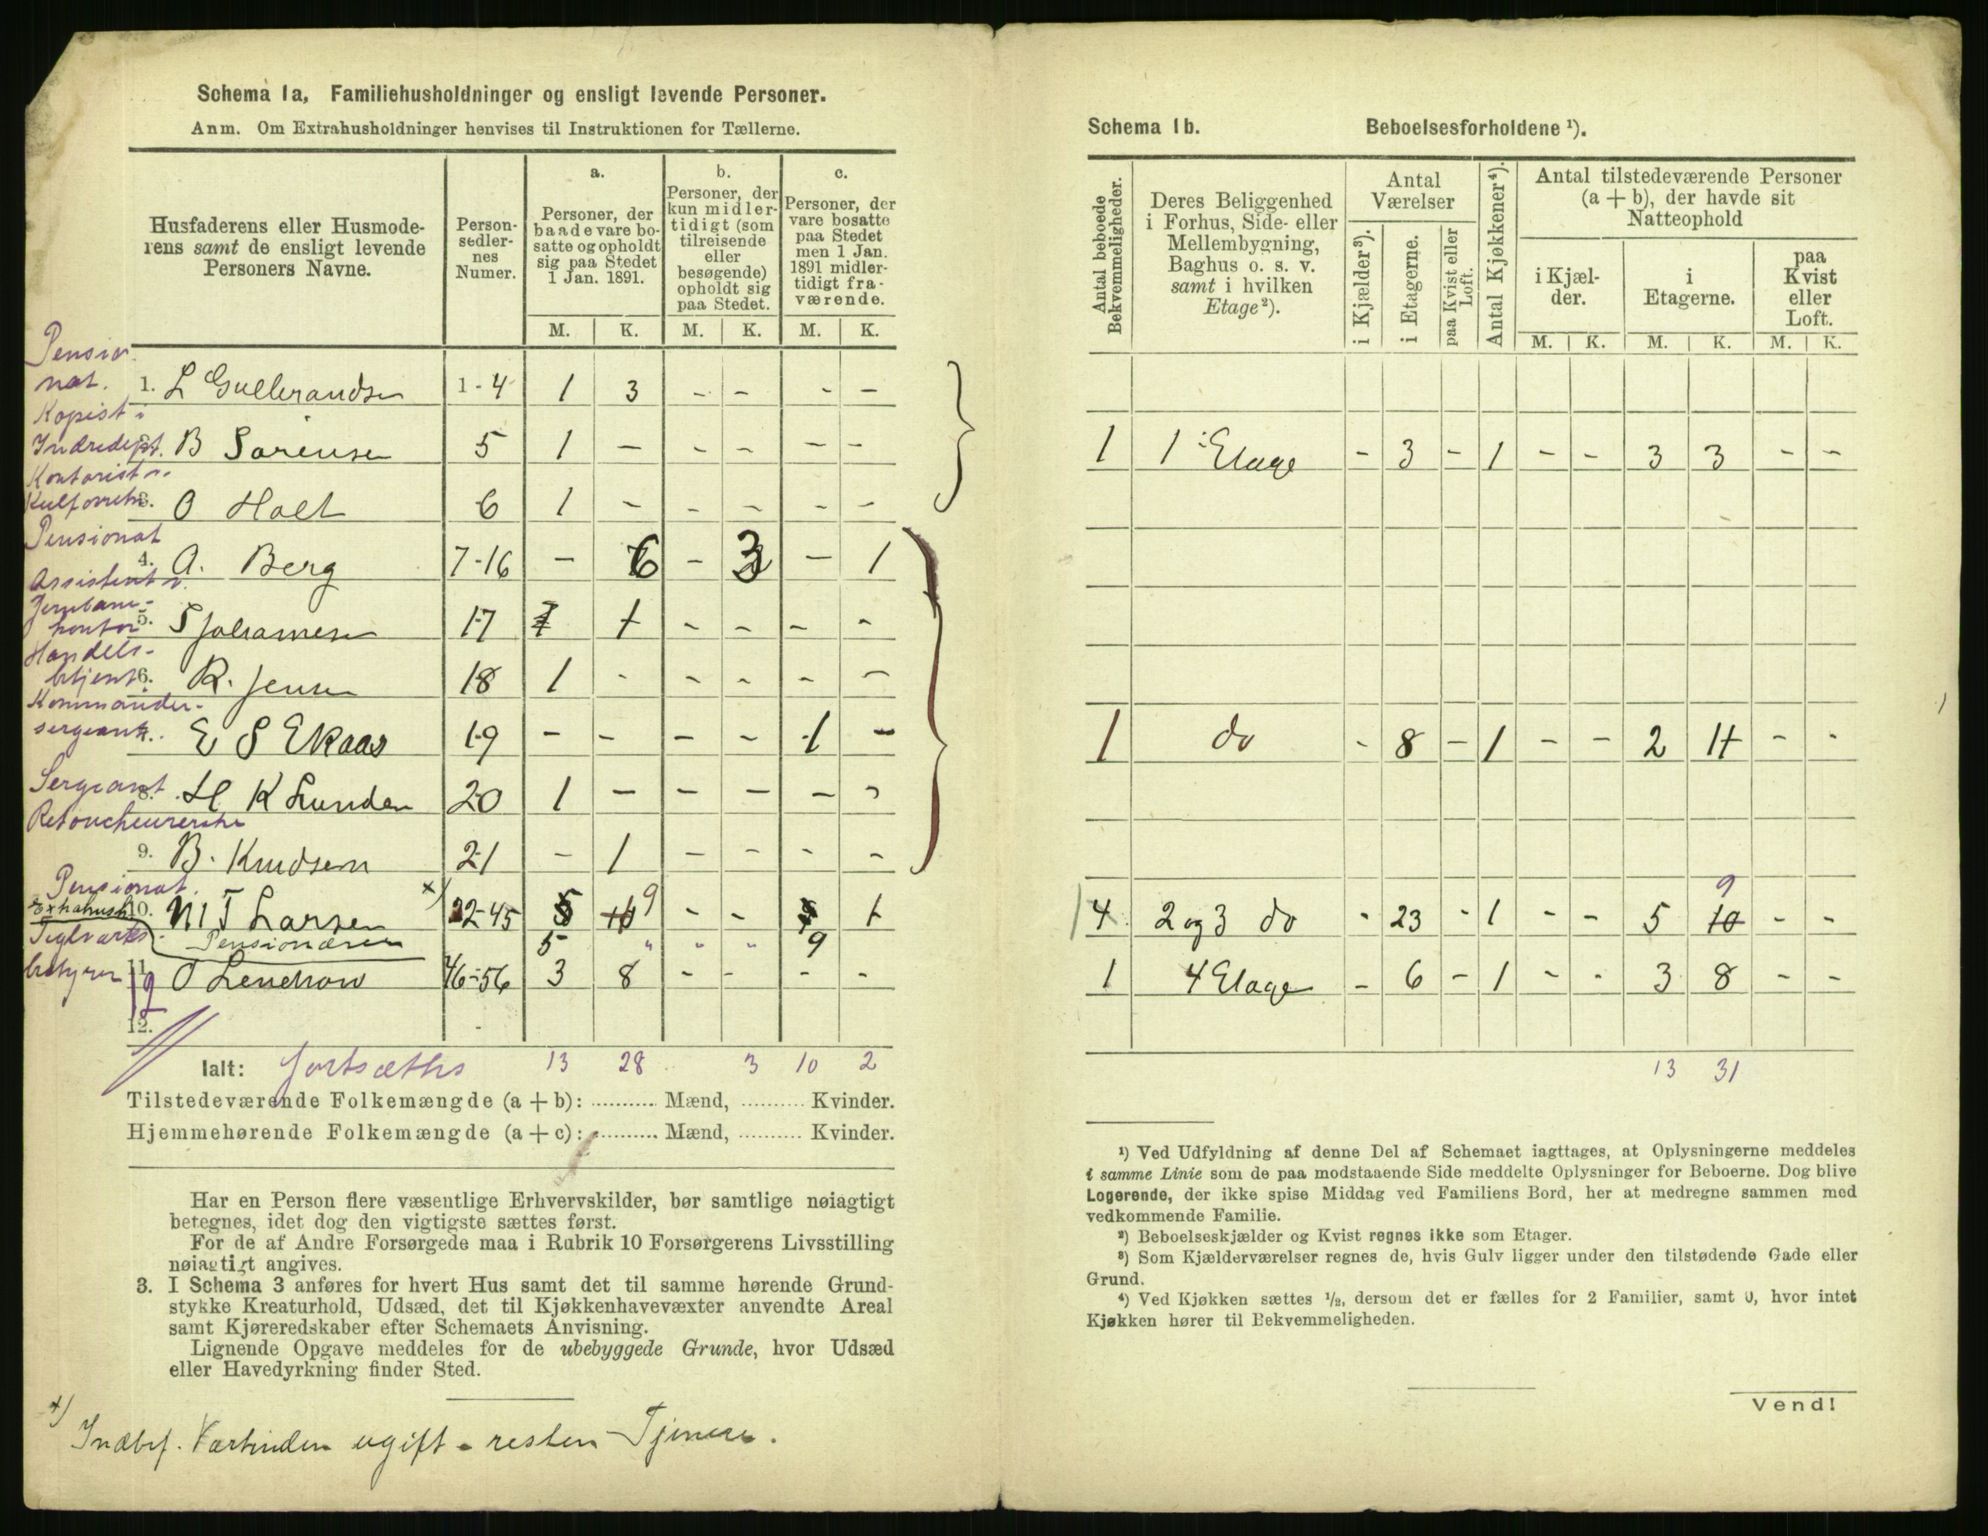 Schema 1a, Familiehusholdninger og ensligt levende Personer.
Anm. Om Extrahusholdninger henvises til Instruktionen for Tællerne.
Husfaderens eller Husmoderens samt de ensligt levende Personers Navne.
Personsedlernes Numer.
a. Personer, der baade vare bosatte og opholdt sig paa Stedet 1 Jan. 1891.
b. Personer, der kun midlertidigt (som tilreisende eller besøgende) opholdt sig paa Stedet.
c. Personer, der vare bosatte paa Stedet men 1 Jan. 1891 midlertidigt fraværende.
M. K. M. K. M. K.
Pensionat. 1. L Gulbrandsen 1-4 1 3 - - - -
Kopist i Indredept. B Sørensen 5 1 - - - - -
Kontorist 3. O Holt 6 1 - - - - -
Pensionat 4. A. Berg 7-16 - 6 - 3 - 1
Assistent v. Jernbanekontor 5. S Johannesen 17 1 - - - -
Handelsbetjent 6. R. Jensen 18 1 - - - - -
Kommandersergeant 7. E S Ekaas 19 - - - - 1 -
Sergeant 8. H K Lunden 20 1 - - - - -
Retoucheurerske
9. B. Knudsen 21 - 1 - - - -
Pensionat.
Extrahush. 10. M T Larsen x) 22-45 5 9 - - 1
Pensionærer 5 " " " 9
Teglværksbestyrer 11. O Lenchow 46-56 3 8 - - - -
12.
Ialt: fortsættes 13 28 3 10 2
Tilstedeværende Folkemængde (a + b): .......... Mænd, .......... Kvinder.
Hjemmehørende Folkemængde (a + c): .......... Mænd, .......... Kvinder.
Har en Person flere væsentlige Erhvervskilder, bør samtlige nøiagtigt
betegnes, idet dog den vigtigste sættes først.
For de af Andre Forsørgede maa i Rubrik 10 Forsørgerens Livsstilling
nøiagtigt angives.
3. I Schema 3 anføres for hvert Hus samt det til samme hørende Grund-
stykke Kreaturhold, Udsæd, det til Kjøkkenhavevæxter anvendte Areal
samt Kjøreredskaber efter Schemaets Anvisning.
Lignende Opgave meddeles for de ubebyggede Grunde, hvor Udsæd
eller Havedyrkning finder Sted.
x) Indbef. Værtinden ugift - resten Tjenere.
Schema 1b. Beboelsesforholdene ¹).
Antal beboede Bekvemmeligheder.
Deres Beliggenhed i Forhus, Side- eller Mellembygning, Baghus o. s. v. samt i hvilken Etage²).
Antal Værelser
i Kjælder³).
i Etagerne.
paa Kvist eller Loft.
Antal Kjøkkener⁴).
Antal tilstedeværende Personer (a + b), der havde sit Natteophold
i Kjælder.
i Etagerne.
paa Kvist eller Loft.
M. K. M. K. M. K.
1 1 Etage - 3 - 1 - - 3 3 - -
1 do - 8 - 1 - - 2 11 - -
9
4 2 og 3 do - 23 - 1 - - 5 10 - -
1 4 Etage - 6 - 1 - - 3 8 - -
13 31
¹) Ved Udfyldning af denne Del af Schemaet iagttages, at Oplysningerne meddeles
i samme Linie som de paa modstaaende Side meddelte Oplysninger for Beboerne. Dog blive
Logerende, der ikke spise Middag ved Familiens Bord, her at medregne sammen med
vedkommende Familie.
²) Beboelseskjælder og Kvist regnes ikke som Etager.
³) Som Kjælderværelser regnes de, hvis Gulv ligger under den tilstødende Gade eller
Grund.
⁴) Ved Kjøkken sættes ½, dersom det er fælles for 2 Familier, samt 0, hvor intet
Kjøkken hører til Bekvemmeligheden.
Vend!